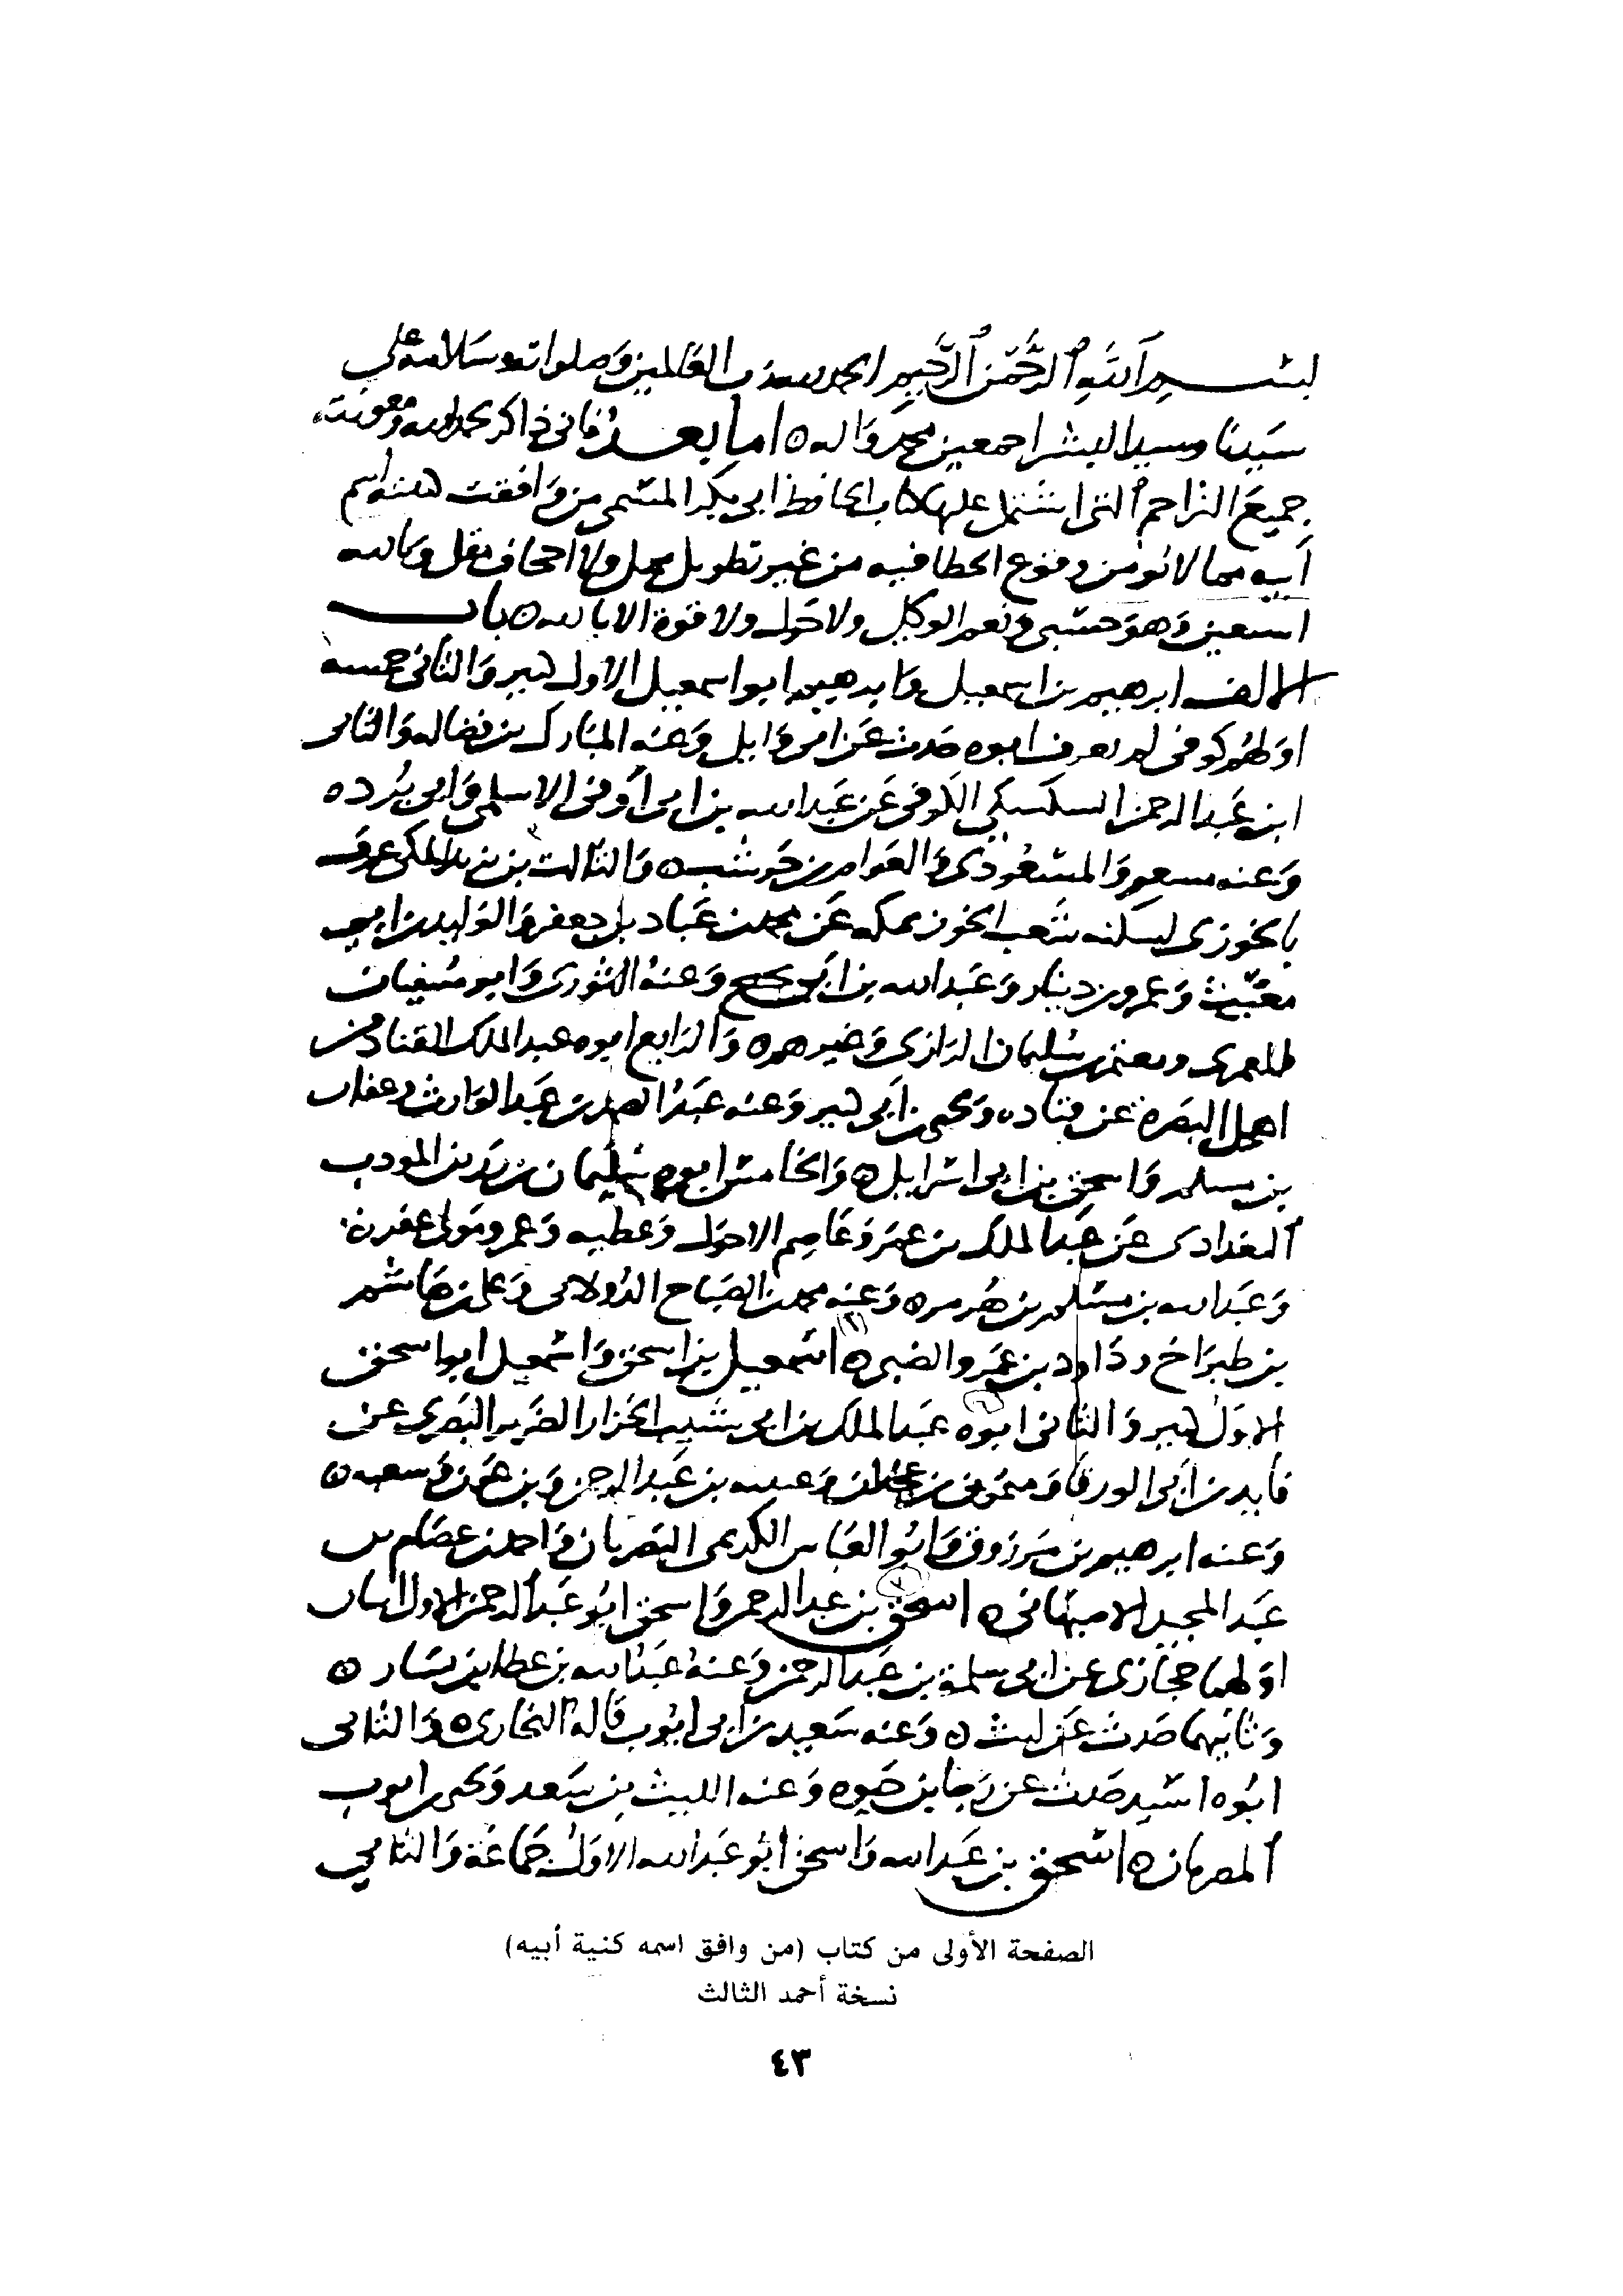 بسم الله الرحمن الرحيم الحمد لله رب العالمين وصلواته وسلامه على
سيدنا وسيد البشر اجمعين محمد واله ه اما بعد فاني ذاكر بحمد الله ومعونته
جميع التراجم التي اشتمل عليها كتاب الحافظ ابي بكر المسمى من وافقت كنيته اسم
ابيه مما لا يؤمن وقوع الخطا فيه من غير تطويل ممل ولا اجحاف مقل وبالله
استعين وهو حسبي ونعم الوكيل ولا حول ولا قوة الا بالله ه باب
الالف ابرهيم بن اسمعيل وابرهيم ابو اسمعيل الاول كبير والثاني خمسة
اولهم كوفي لم يعرف ابوه حدث عن ابي وايل وعنه المبارك بن فضاله والثاني
ابن عبد الرحمن السكسكي الكوفي عن عبد الله بن ابي اوفى الاسلمي وابي برده
وعنه مسعر والمسعودي والعوام بن حوشب ه والثالث بن يزيد المكي عرف
بالخوزي لسكنه شعب الخوز بمكه عن محمد بن عباد بن جعفر والوليد بن ابي
مغيث وعمرو بن دينار وعبد الله بن ابي نجيح وعنه الثوري وابو سفيان
المعمري ومعتمر بن سليمان الرازي وغيرهم ه والرابع ابوه عبد الملك القناد من
اهل البصرة عن قتاده ويحيى بن ابي كثير وعنه عبد الصمد بن عبد الوارث وعفان
بن مسلم واسحق بن ابي اسرايل ه والخامس ابوه سليمان بن رزين المودب
البغدادي عن عبد الملك بن عمير وعاصم الاحول وعطيه وعمرو مولى عفره
وعبد الله بن مسلم بن هرمز ه وعنه محمد بن الصباح الدولابي وعلي بن هاشم
بن طبراخ وداود بن عمرو الضبي ه اسمعيل بن اسحق واسمعيل ابو اسحق
الاول كبير والثاني ابوه عبد الملك بن ابي شيب الخزاز الضرير البصري عن
فايد بن ابي الورقا وميمون بن وعيينه بن عبد الرحمن وبن عون وشعبه ه
وعنه ابرهيم بن مرزوق وابو العباس الكديمي البصريان واحمد بن عصام بن
عبد المجيد الاصبهاني ه اسحق بن عبد الرحمن واسحق ابو عبد الرحمن الاول اثنان
اولهما حجازي عن ابي سلمة بن عبد الرحمن وعنه عبد الله بن عطا بن يسار ه
وثانيهما حدث عن ليث ه وعنه سعيد بن ابي ايوب قاله البخاري ه والثاني
ابوه اسيد حدث عن رجا بن حيوه وعنه الليث بن سعد ويحيى بن ايوب
المصريان ه اسحق بن عبد الله واسحق ابو عبد الله الاول جماعة والثاني
الصفحة الأولى من كتاب (من وافق اسمه كنية أبيه)
نسخة أحمد الثالث
٤٣